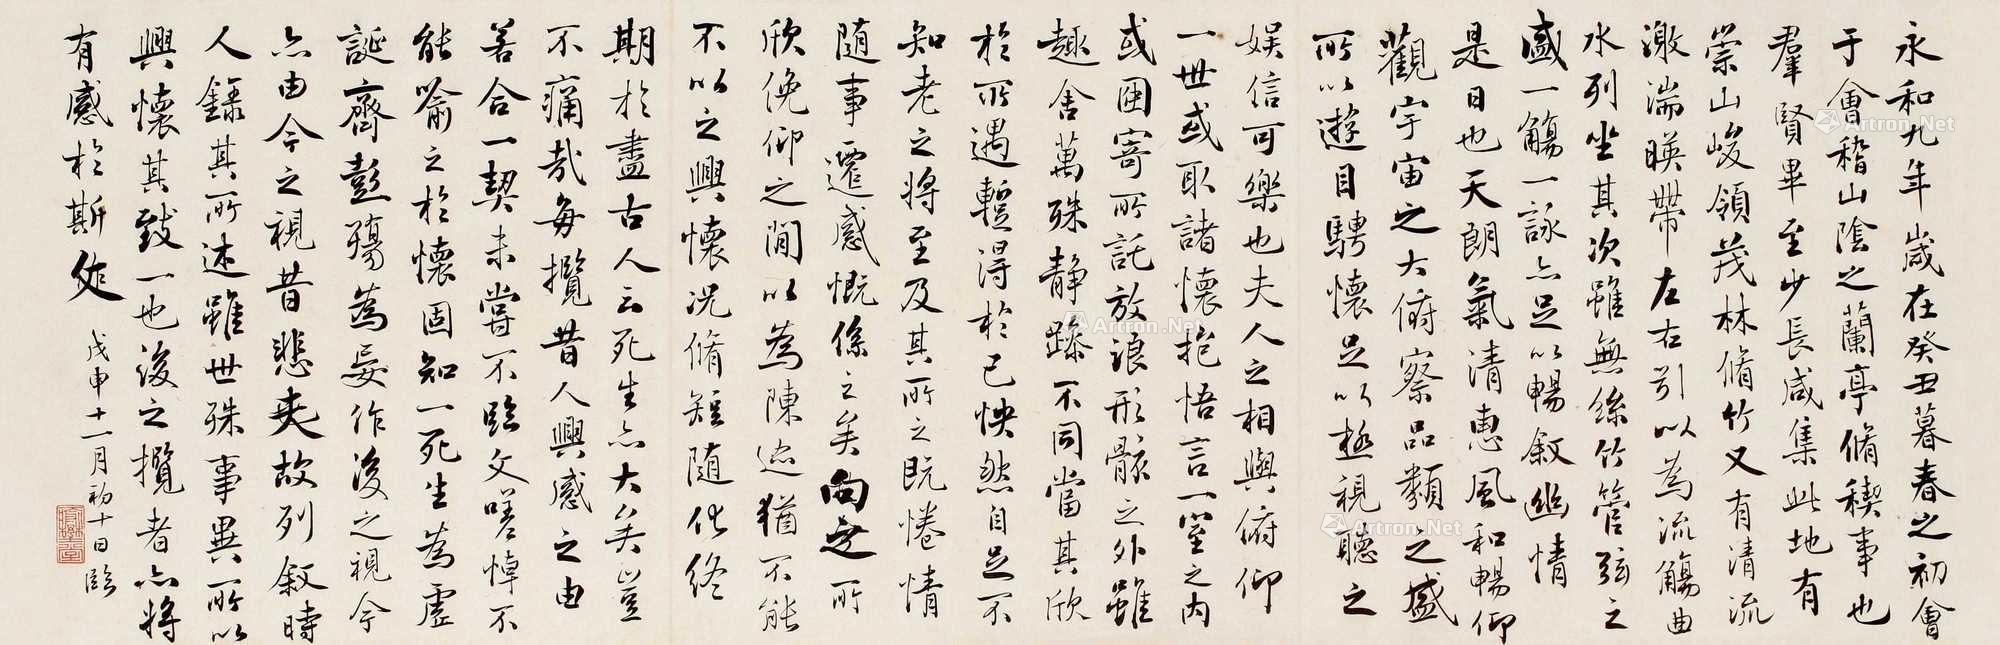 永和九年歲在癸丑暮春之初會
于會稽山陰之蘭亭脩稧事也
羣賢畢至少長咸集此地有
崇山峻領茂林脩竹又有清流
激湍暎帶左右引以為流觴曲
水列坐其次雖無絲竹管弦之
盛一觴一詠亦足以暢敘幽情
是日也天朗氣清惠風和暢仰
觀宇宙之大俯察品類之盛
所以遊目騁懷足以極視聽之
娛信可樂也夫人之相與俯仰
一世或取諸懷抱悟言一室之內
或因寄所託放浪形骸之外雖
趣舍萬殊靜躁不同當其欣
於所遇蹔得於己怏然自足不
知老之將至及其所之既惓情
隨事遷感慨係之矣向之所
欣俛仰之閒以為陳迹猶不能
不以之興懷況脩短隨化終
期於盡古人云死生亦大矣豈
不痛哉每攬昔人興感之由
若合一契未嘗不臨文嗟悼不
能喻之於懷固知一死生為虛
誕齊彭殤為妄作後之視今
亦由今之視昔悲夫故列敘時
人錄其所述雖世殊事異所以
興懷其致一也後之攬者亦將
有感於斯作
戊申十一月初十日臨
Artron.Net
Artron.Net
Artron.Net
Artron.Net